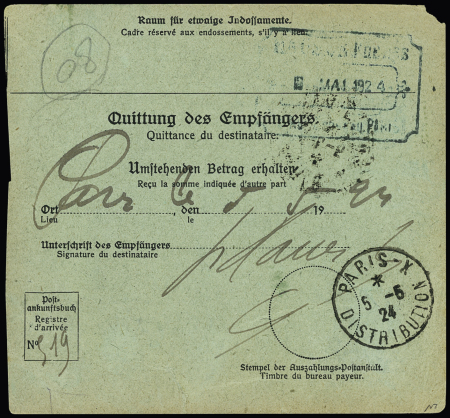 Raum für etwaige Indossamente.
Cadre réservé aux endossements, s'il y a lieu
80
MAI 1924
Quittung des Empfängers.
Quittance du destinataire.
Umstehenden Betrag erhalten
Reçu la somme indiquée d'autre part
Ort, den 19
Lieu le
Paris le 5 5 24
Unterschrift des Empfängers
Signature du destinataire
PARIS-X
*
5 -5
24
DISTRIBUTION
Post-
ankunftsbuch
Registre
d'arrivée
No 519
Stempel der Auszahlungs-Postanstalt.
Timbre du bureau payeur.